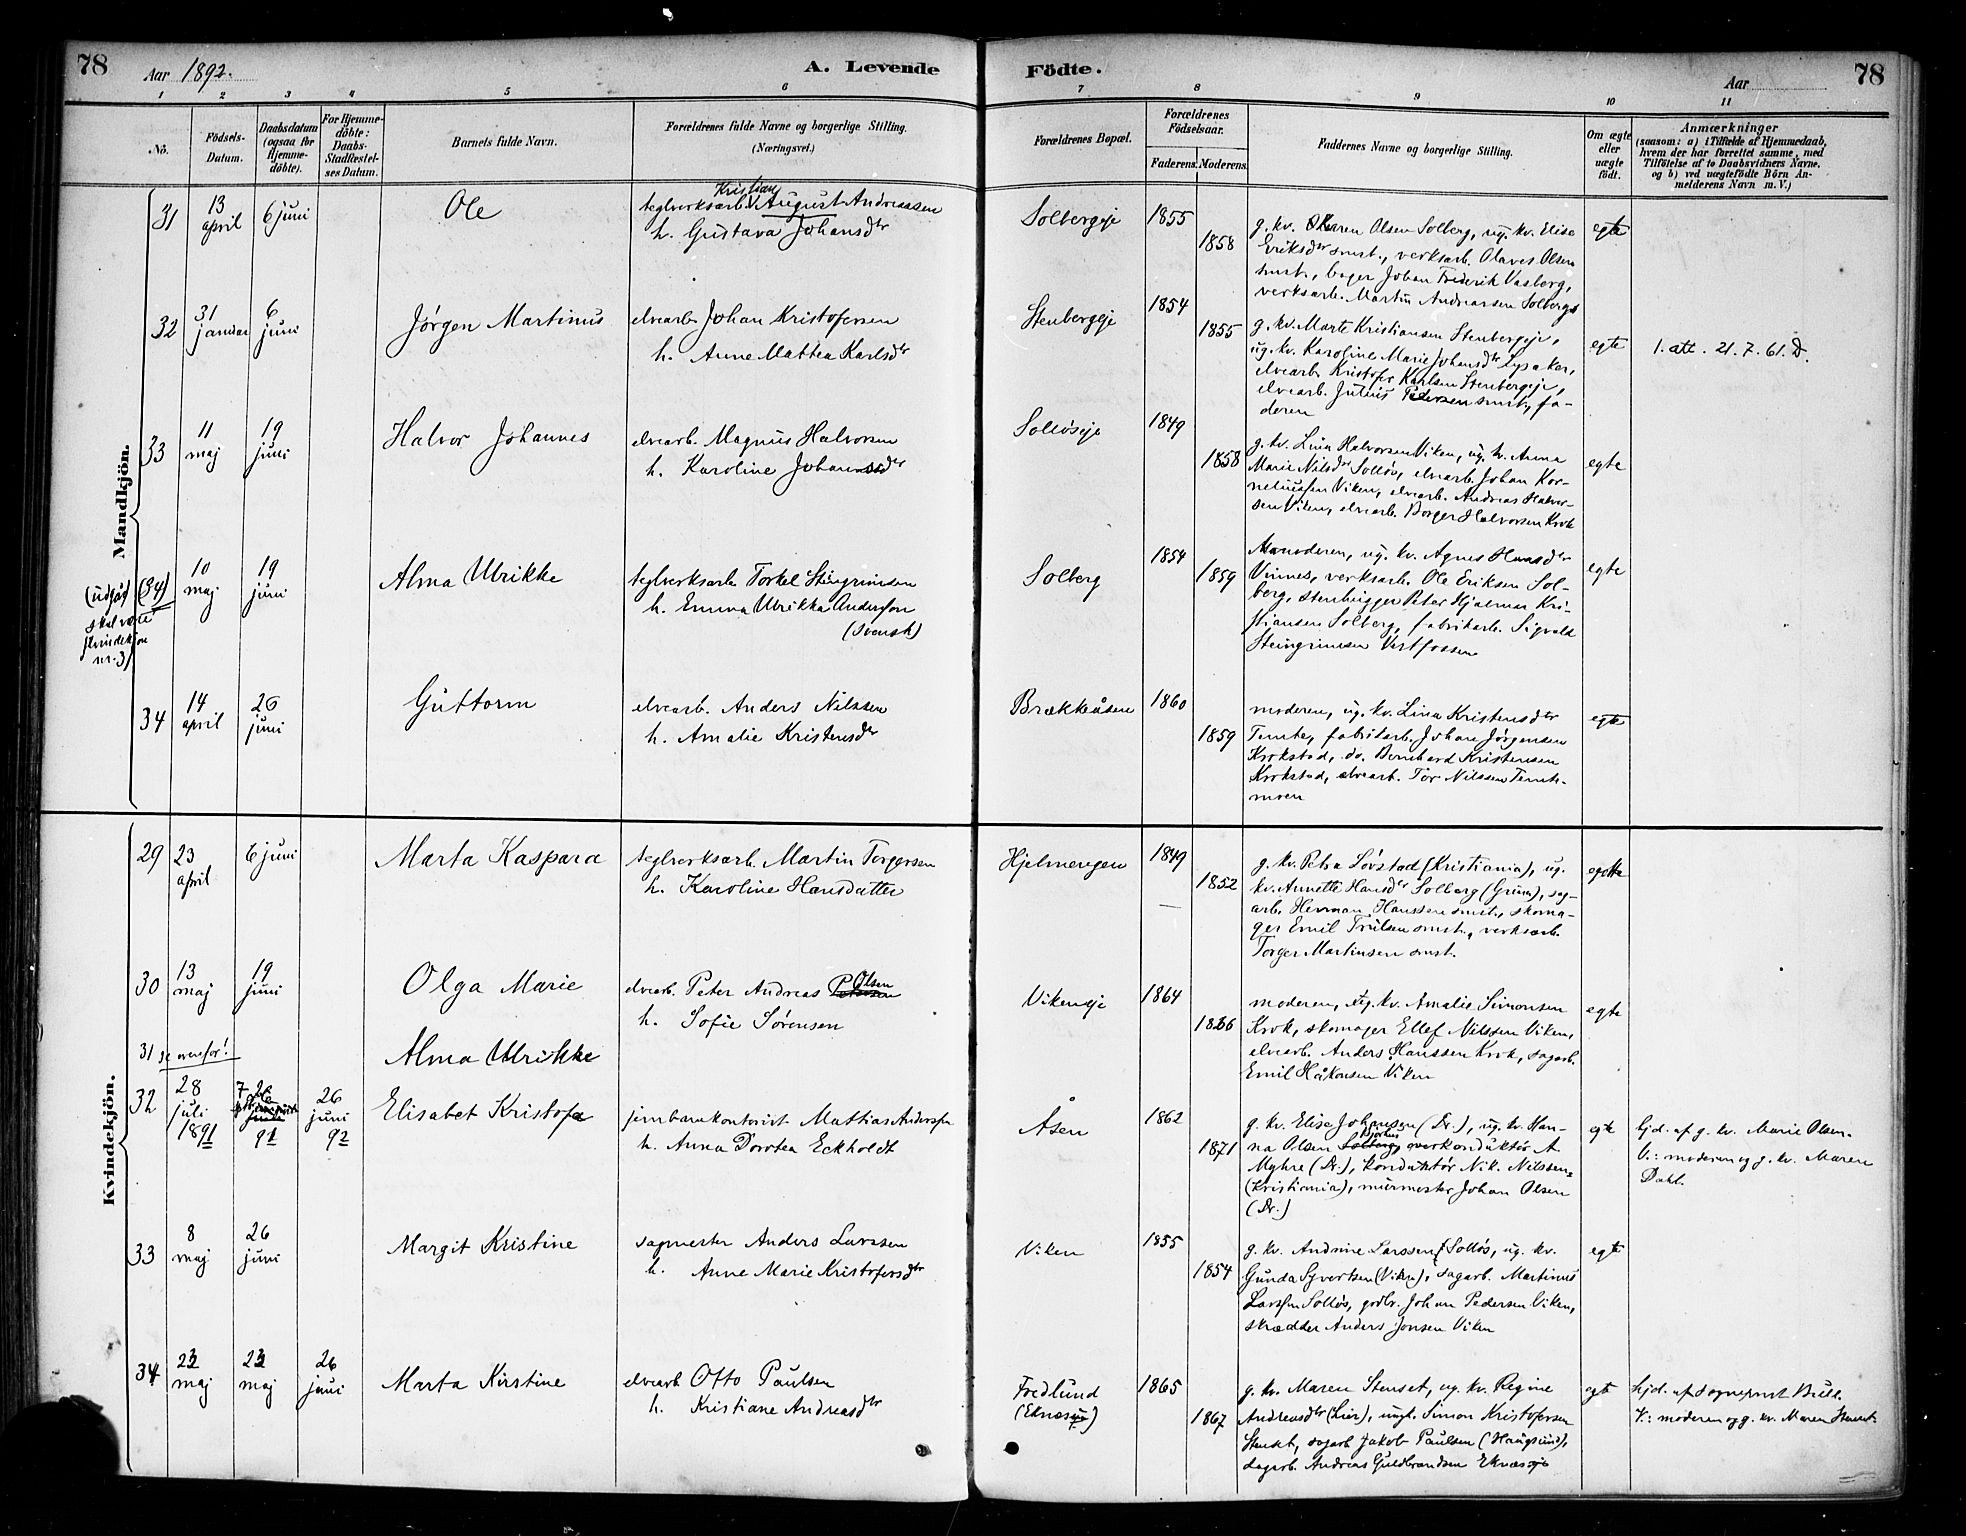 78
Aar 1892.
A. Levende Födte.
Aar
78
1 2 3 4 5 6 7 8 9 10 11
No.
Födsels-Datum.
Daabsdatum (ogsaa for Hjemme-döbte).
For Hjemme-döbte: Daabs-Stadfæstel-ses Datum.
Barnets fulde Navn.
Forældrenes fulde Navne og borgerlige Stilling.
(Næringsvei.)
Forældrenes Bopæl.
Forældrenes Födselsaar.
Faderens. Moderens.
Faddernes Navne og borgerlige Stilling.
Om ægte eller uægte födt.
Anmærkninger
(saasom: a) i Tilfælde af Hjemmedaab,
hvem der har forrettet samme, med
Tilföielse af to Daabsvidners Navne.
og b) ved uægtefödte Börn An-
melderens Navn m. V.)
Mandkjön.
31 13 april 6 juni Ole
teglverksarb. Kristian August Andreassen
h. Gustava Johansdtr
Solbergeje 1855 1858
g. kv. Karen Olsen Solberg, ug. kv. Elise
Eriksdtr smst., verksarb. Olaves Olsen
smst., bager Johan Frederik Vasberg,
verksarb. Martin Andreasen Solberg
egte
32 31 januar 6 juni Jørgen Martinus
elvearb. Johan Kristofersen
h. Anne Mattea Karlsdtr
Stenbergeje 1854 1855
g. kv. Marte Kristiansen Stenbergeje,
ug. kv. Karoline Marie Johansdtr Lysaker,
elvearb. Kristofer Karlsen Stenbergeje,
elvearb. Julius Pedersen smst., fa-
deren
egte
1. att. 21.7.61. D.
33 11 maj 19 juni Halvor Johannes
elvearb. Magnus Halvorsen
h. Karoline Johansdtr
Solløseje 1849 1858
g. kv. Lina Halvorsen Viken, ug. kv. Anna
Marie Nilsdtr Solløs, elvearb. Johan Kor-
neliussen Viken, elvearb. Andreas Halvor-
sen Viken, elvearb. Borger Halvorsen Krok
egte
(udgår) (34)
skal være
kvindekjøn
nr. 31
10 maj 19 juni Alma Ulrikke
teglverksarb. Torkel Steingrimsen
h. Emma Ulrikka Andersson
(svensk)
Solberg 1854 1859
moderen, ug. kv. Agnes Hansdtr
Vinnes, verksarb. Ole Eriksen Sol-
berg, stenhugger Peter Hjalmar Kri-
stiansen Solberg, fabrikarb. Sigvald
Steingrimsen Vestfossen
egte
34 14 april 26 juni Guttorm
elvearb. Anders Nilssen
h. Amalie Kristensdtr
Brækkeåsen 1860 1859
moderen, ug. kv. Lina Kristensdtr
Temte, fabrikarb. Johan Jørgensen
Krokstad, do. Bernhard Kristensen
Krokstad, elvearb. Tor Nilssen Temte-
moen
egte
Kvindekjön.
29 23 april 6 juni Marta Kaspara
teglverksarb. Martin Torgersen
h. Karoline Hansdatter
Hjelmengen 1849 1852
g. kv. Petra Søvstad (Kristiania), ug.
kv. Annette Hansdtr Solberg (Gruva), sag-
arb. Herman Hanssen smst., skoma-
ger Emil Trulsen smst., verksarb.
Torger Martinsen smst.
egte
30 13 maj 19 juni Olga Marie
elvearb. Peter Andreas Olsen
h. Sofie Sørensen
Vikeneje 1864 1866
moderen, ug. kv. Amalie Simonsen
Krok, skomager Ellef Nilssen Viken,
elvearb. Anders Hanssen Krok, sagarb.
Emil Håkonsen Viken
egte
31 se ovenfor! Alma Ulrikke
32 28 juli 1891 7 91 26 juni 92 Elisabet Kristofa
jernbanekontorist Mattias Andersen
h. Anna Dorotea Eckholdt
Åsen 1862 1871
g. kv. Elise Johansen (Dr.), ug. kv. Han-
na Olsen overkonduktør A.
Myhre (Dr.), konduktør Nik. Nilssen
(Kristiania), murmester Johan Olsen
(Dr.)
egte
hjd. af g. kv. Marie Olsen.
V.: moderen og g. kv. Maren
Dahl.
33 8 maj 26 juni Margit Kristine
sagmester Anders Larssen
h. Anne Marie Kristofersdtr
Viken 1855 1854
g. kv. Andrine Larssen Solløs, ug. kv.
Gunda Syvertsen (Viken), sagarb. Martinus
Larssen Solløs, grdbr. Johan Pedersen Viken,
skrædder Anders Jonsen Viken
egte
34 22 maj 23 maj 26 juni Marta Kirstine
elvearb. Otto Paulsen
h. Kristiane Andreasdtr
Fredlund
(Eknæseje)
1865 1867
g. kv. Maren Stenset, ug. kv. Regine
Andreasdtr (Lier), ungk. Simon Kristofersen
Stenset, sagarb Jakob Paulsen (Haugsund),
dagarb. Andreas Guldbrandsen Eknæseje
egte
hjd. af sognepræst Bull.
V.: moderen og g. kv. Maren Stenset.